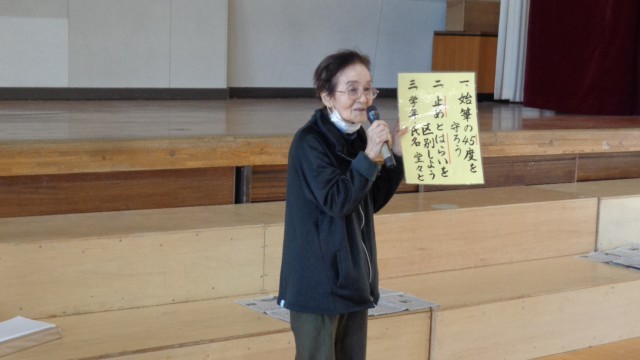 一、始筆の45度を
守ろう
二、止めとはらいを
区別しよう
三、学年・氏名 堂々と